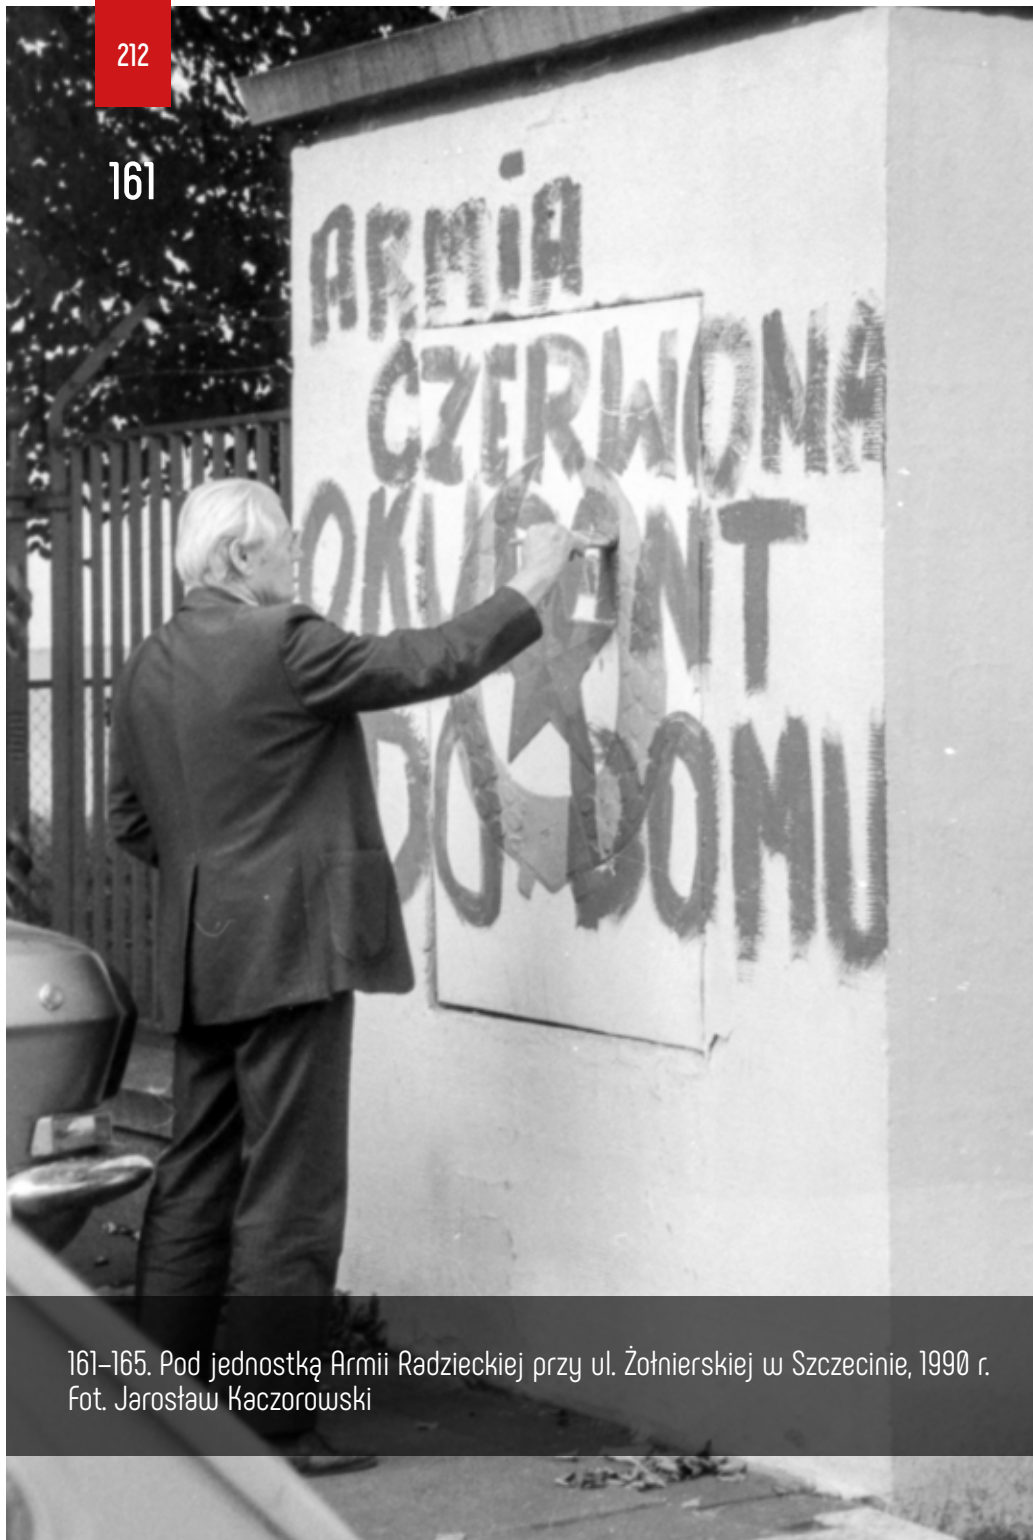 212
161
ARMiA
CZERWONA
OKUPANT
DO DOMU
161–165. Pod jednostką Armii Radzieckiej przy ul. Żołnierskiej w Szczecinie, 1990 r.
Fot. Jarosław Kaczorowski